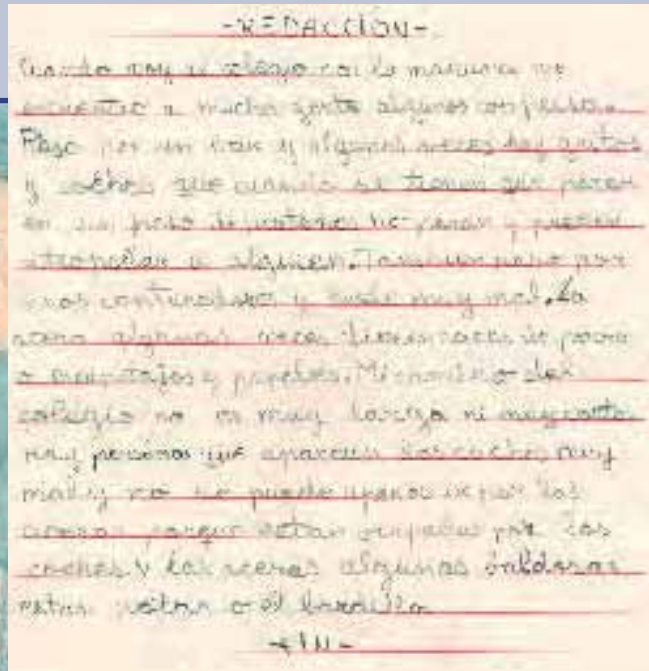 -REDACCIÓN-
Cuando voy al colegio por la mañana me
encuentro a mucha gente algunos con perros.
Paso por un bar y algunas veces hay gritos
y coches que cuando se tienen que parar
en un paso de peatones no paran y pueden
atropellar a alguien. Tambien paso por
unos contenedores y huele muy mal. La
acera algunas veces tiene cacas de perro
o escupitajos y papeles. Mi camino del
colegio no es muy larga ni muy corta
hay personas que aparcan los coches muy
mal y no se puede apenas ir por las
aceras porque estan ocupadas por los
coches y las aceras algunas baldosas
estan rotas o el bordillo
-FIN-